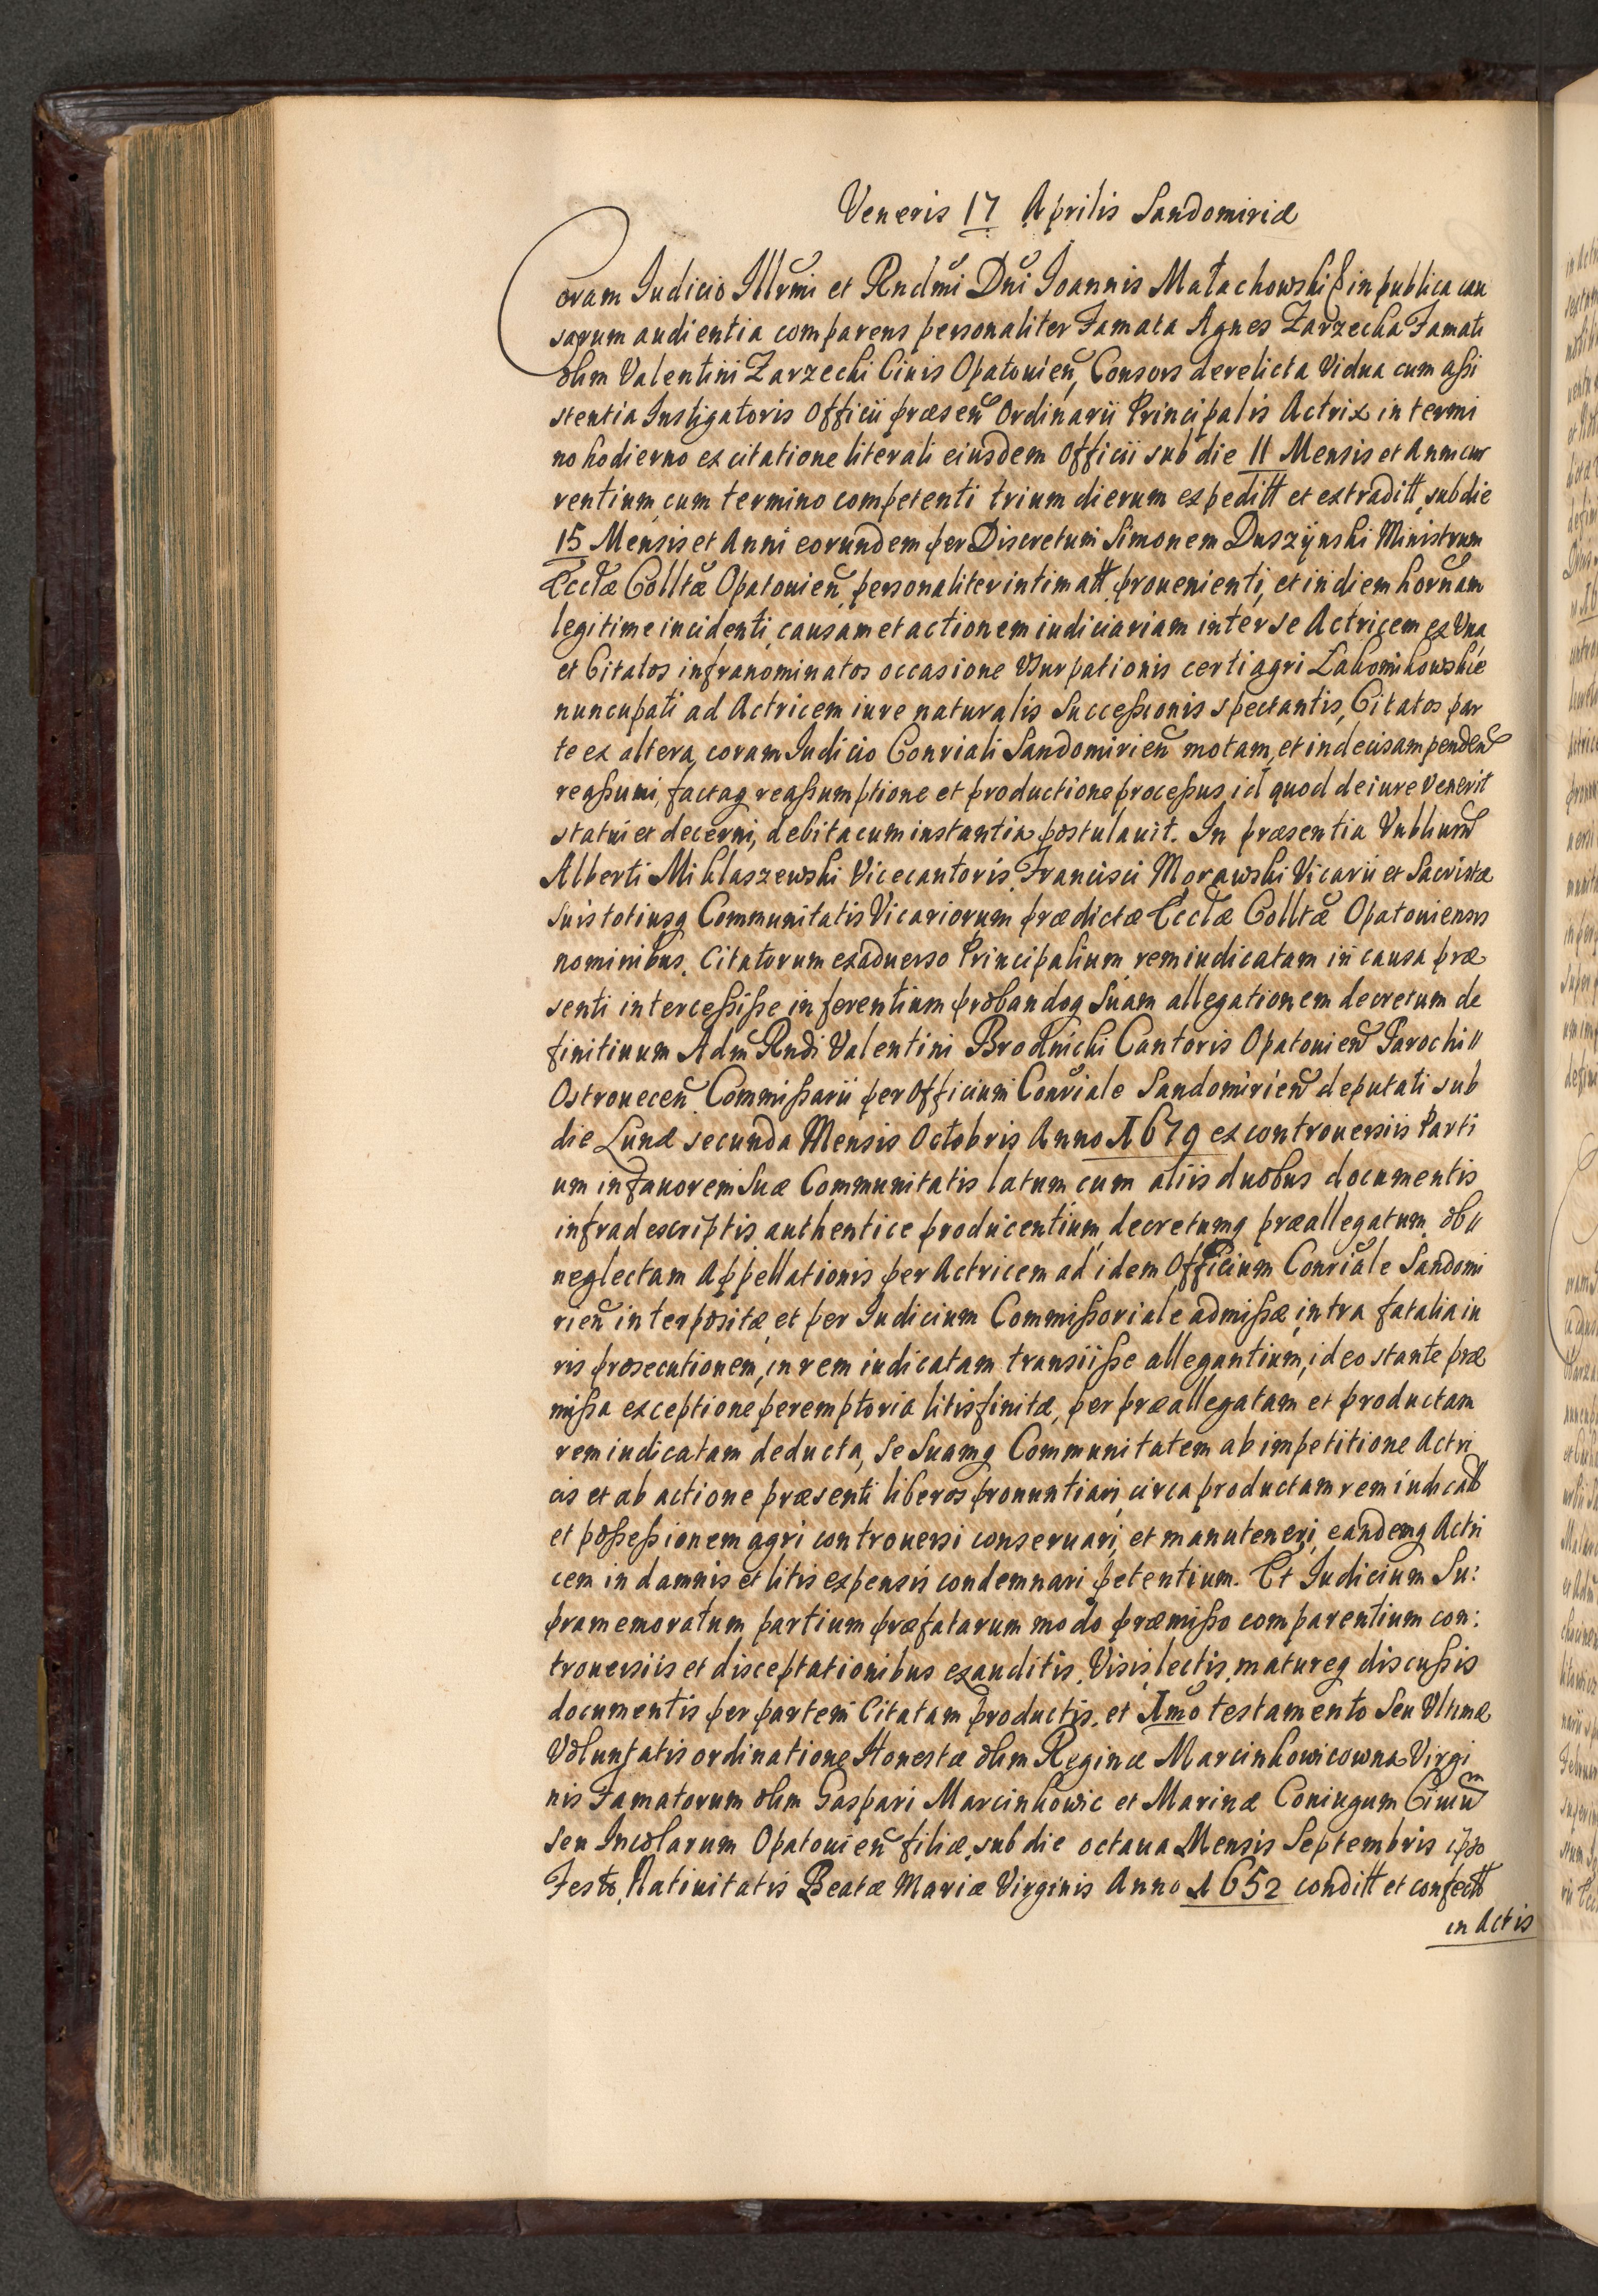 Veneris 17 Aprilis Sandomiriæ
Coram Iudicio Illrmi et Rndmi Dni Ioannis Małachowski in publica cau
sarum audientia comparens personaliter Famata Agnes Zarzecka Famati
olim Valentini Zarzecki Ciuis Opatouien, Consors derelicta Vidua cum assi
stentia Instigatoris Officii præsen Ordinarii Principalis Actrix in termi
no hodierno ex citatione literali eiusdem Officii sub die 11 Mensis et Anni cur
rentium, cum termino competenti trium dierum expeditt et extraditt, sub die
15 Mensis et Anni eorundem per Discretum Simonem Duszÿnski Ministrum
Ecctæ Colltæ Opatouien personaliter intimatt prouenienti, et in diem hornam
legitime incidenti, causam et actionem iudiciariam inter se Actricem ex Vna
et Citatos infranominatos occasione Vsurpationis certi agri Lakomikowskie
nuncupati ad Actricem iure naturalis Successionis spectantis, Citatos par
te ex altera, coram Iudicio Conriali Sandomirien motam, et indecisam penden
reassumi, factaq reassumptione et productione processus id quod de iure Venerit
statui et decerni, debita cum instantia postulauit. In præsentia Vnblium
Alberti Miklaszewski Vicecantoris, Francisci Morawski Vicarii et Sacristæ
suis totiusq Communitatis Vicariorum prædictæ Ecctæ Colltæ Opatouiensis
nominibus, Citatorum ex aduerso Principalium, rem iudicatam in causa præ
senti intercessisse inferentium probandoq Suam allegationem decretum de
finitiuum Adm Rndi Valentini Brodnicki Cantoris Opatouien Parochi
Ostrouecen Commissarii per Officium Conriale Sandomirien deputati sub
die Lunæ secunda Mensis Octobris Anno 1679 ex controuersiis Parti
um in fauorem Suæ Communitatis latum cum aliis duobus documentis
infradescriptis authentice producentium, decretumq præallegatum ob
neglectam Appellationis per Actricem ad idem Officium Conriale Sandomi
rien interpositæ, et per Iudicium Commissoriale admissæ, intra fatalia iu
ris prosecutionem, in rem iudicatam transiisse allegantium, ideo stante præ
missa exceptione peremptoria litis finitæ, per præallegatam et productam
rem iudicatam deducta, Se Suamq Communitatem ab impetitione Actri
cis et ab actione præsenti liberos pronuntiari, circa productam rem iudicatt
et possessionem agri controuersi conseruari, et manuteneri, eandemq Actri
cem in damnis et litis expensis condemnari petentium. Et Iudicium Su:
pramemoratum partium præfatarum modo præmisso comparentium con:
trouersiis et disceptationibus exauditis, Visis lectis, matureq discussis
documentis per partem Citatam productis, et Imo testamento Seu Vltimæ
Voluntatis ordinatione Honestæ olim Reginæ Marcinkowicowna Virgi
nis Famatorum olim Gaspari Marcinkowic et Marinæ Coniugum Ciuium
Seu Incolarum Opatouien filiæ, sub die octaua Mensis Septembris ipso
Festo Natiuitatis Beatæ Mariæ Virginis Anno 1652 conditt et confectt
in Actis